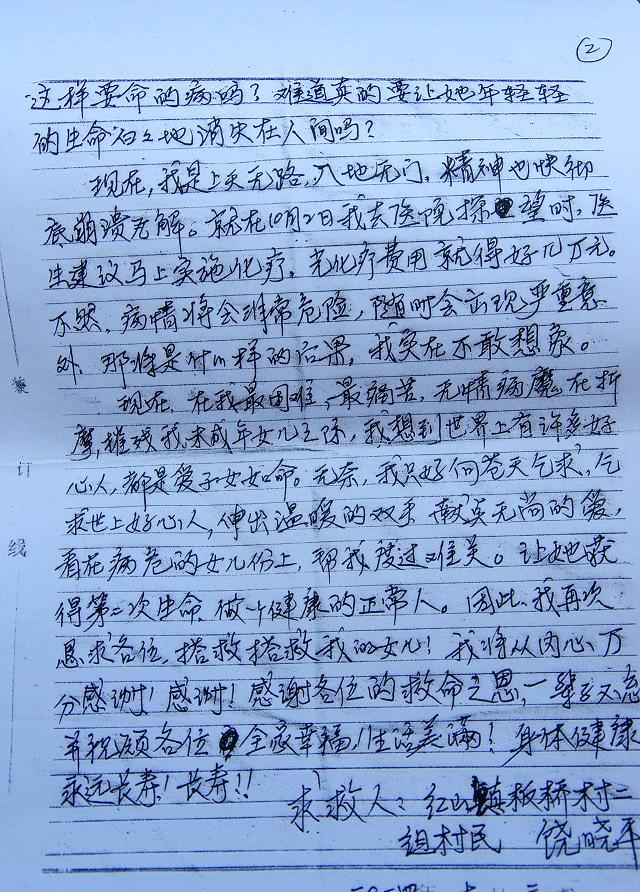 ②
这样要命的病吗？难道真的要让她年轻轻
的生命白白地消失在人间吗？
现在，我是上天无路，入地无门，精神也快彻
底崩溃无解。就在10月2日我去医院探望时，医
生建议马上实施化疗，光化疗费用就得好几万元。
不然，病情将会非常危险，随时会出现严重意
外，那将是什么样的后果，我实在不敢想象。
现在，在我最困难，最痛苦，无情病魔在折
摩，摧残我未成年女儿之际，我想到世界上有许多好
心人，都是爱子女如命。无奈，我只好向苍天乞求，乞
求世上好心人，伸出温暖的双手，献出无尚的爱，
看在病危的女儿份上，帮我度过难关。让她获
得第二次生命，做一个健康的正常人。因此，我再次
恳求各位，搭救搭救我的女儿！我将从内心万
分感谢！感谢！感谢各位的救命之恩，一辈子不忘
并祝愿各位全家幸福！生活美满！身体健康
永远长寿！长寿！！
求救人：红山镇板桥村二
组村民 饶晓平
装
订
线